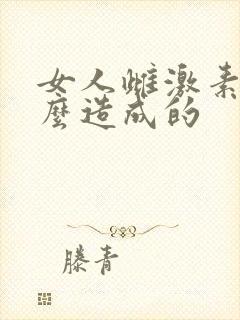 女人雌激素
麼造成的
滕青